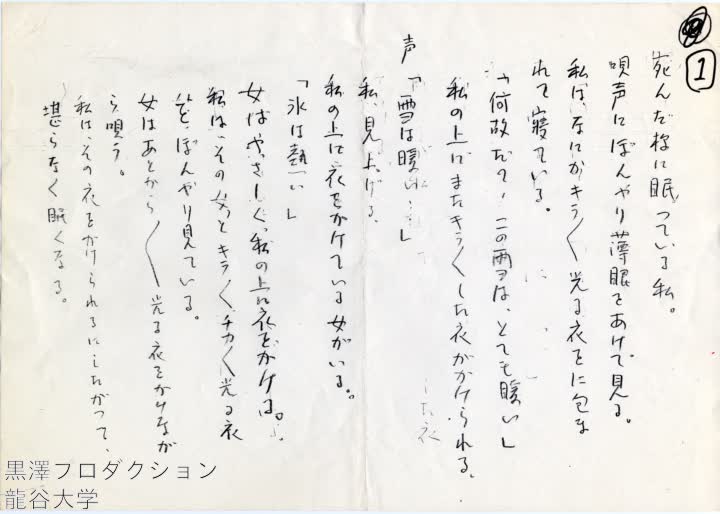 1
死んだ様に眠っている私。
唄声にぼんやり薄眼をあけて見る。
私は、なにかキラ〱光る衣をに包ま
れて寝ている。
「何故だろ、この雪は、とても暖い」
私の上にまたキラ〱した衣がかけられる。
声「雪は暖い」
私、見上げる。
私の上に衣をかけている女がいる。
「氷は熱い」
女はやさしく、私の上に衣をかける。
私は、その女とキラ〱チカ〱光る衣
を、ぼんやり見ている。
女はあとから〱光る衣をかけなが
ら唄う。
私は、その衣をかけられるにしたがって、
堪らなく眠くなる。
した衣
黒澤プロダクション
龍谷大学